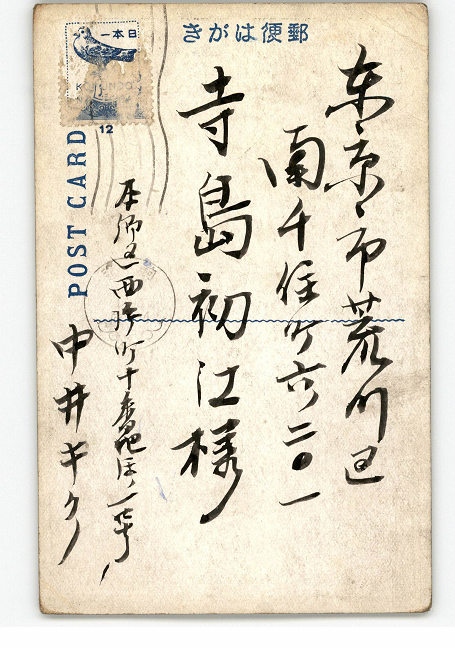 きがは便郵
日本一
POST CARD
12
東京市荒川区
南千住町六二〇一
寺島初江様
本郷区西片町十番地ほノ一
中井キクノ